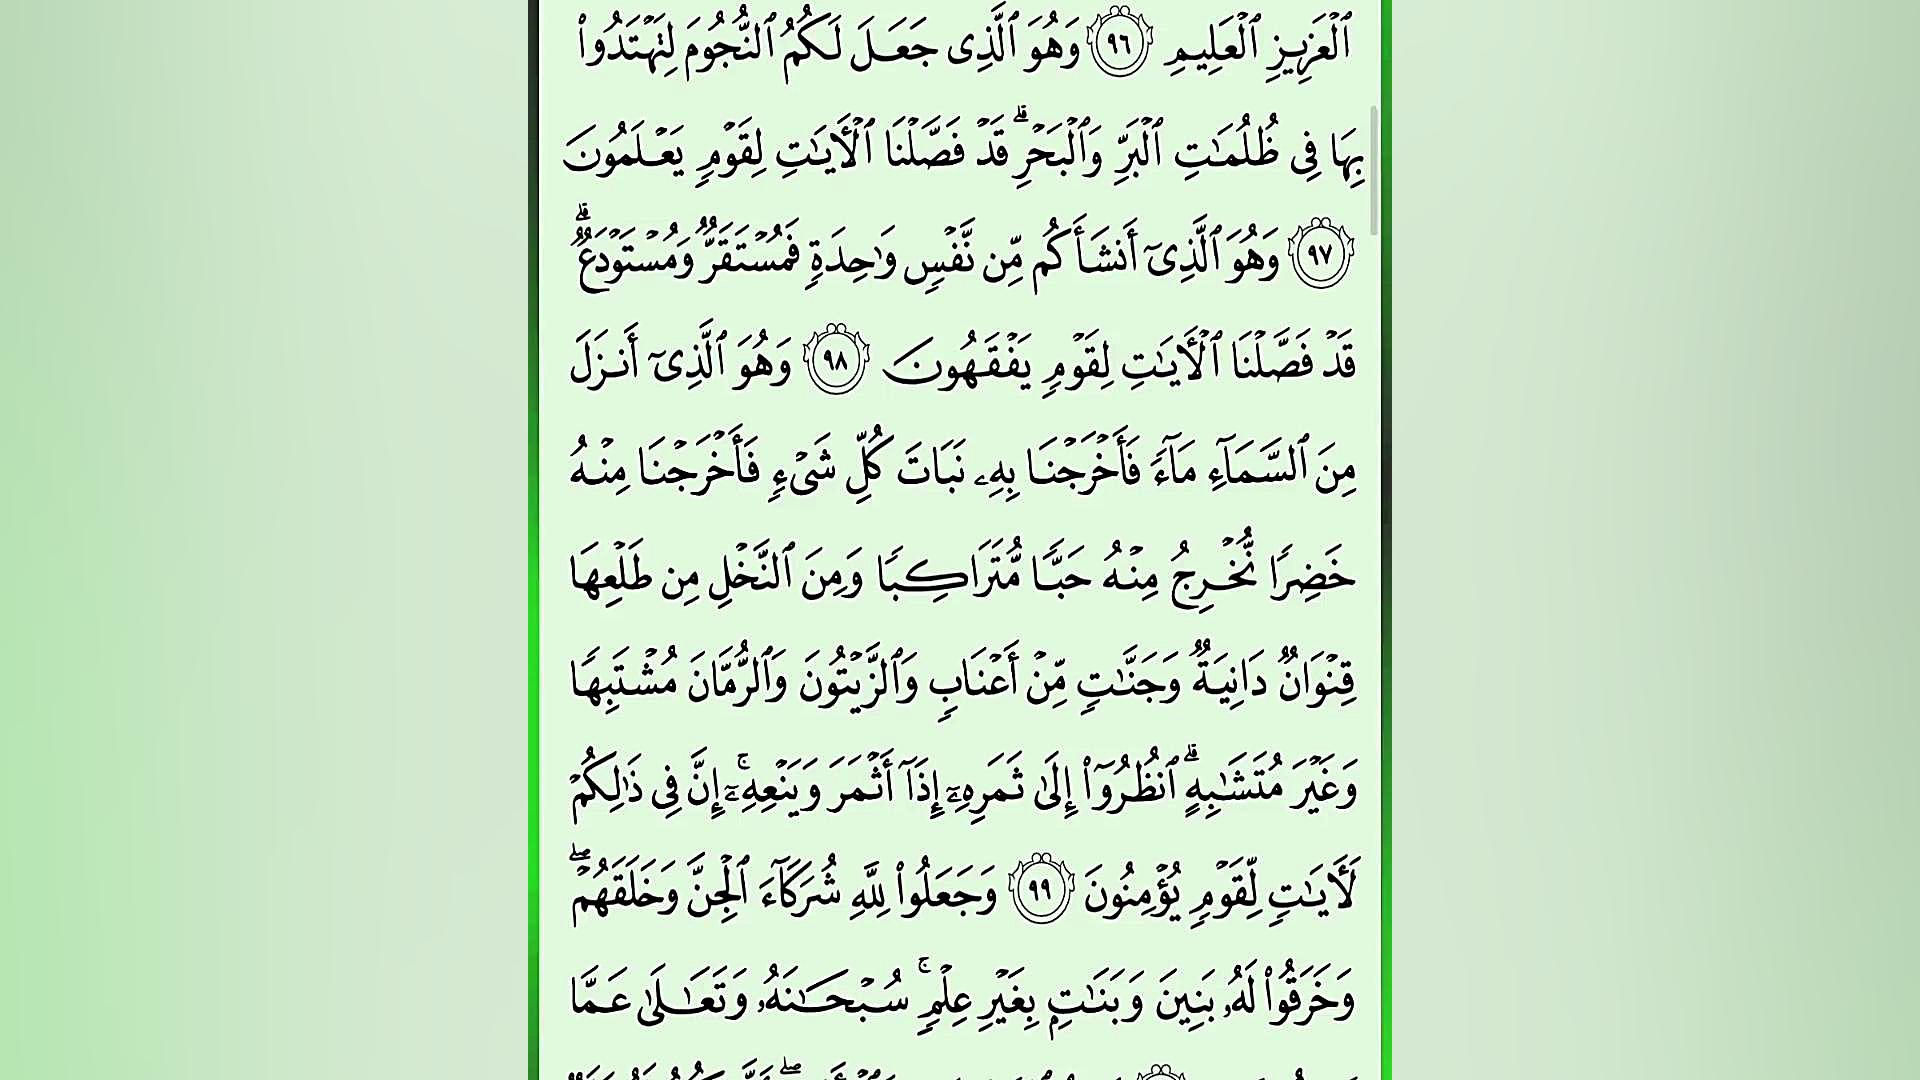 ٱلْعَزِيزِ ٱلْعَلِيمِ ٩٦ وَهُوَ ٱلَّذِى جَعَلَ لَكُمُ ٱلنُّجُومَ لِتَهْتَدُوا۟
بِهَا فِى ظُلُمَـٰتِ ٱلْبَرِّ وَٱلْبَحْرِ ۗ قَدْ فَصَّلْنَا ٱلْـَٔايَـٰتِ لِقَوْمٍ يَعْلَمُونَ
٩٧ وَهُوَ ٱلَّذِىٓ أَنشَأَكُم مِّن نَّفْسٍ وَٰحِدَةٍ فَمُسْتَقَرٌّ وَمُسْتَوْدَعٌ ۗ
قَدْ فَصَّلْنَا ٱلْـَٔايَـٰتِ لِقَوْمٍ يَفْقَهُونَ ٩٨ وَهُوَ ٱلَّذِىٓ أَنزَلَ
مِنَ ٱلسَّمَآءِ مَآءً فَأَخْرَجْنَا بِهِۦ نَبَاتَ كُلِّ شَىْءٍ فَأَخْرَجْنَا مِنْهُ
خَضِرًا نُّخْرِجُ مِنْهُ حَبًّا مُّتَرَاكِبًا وَمِنَ ٱلنَّخْلِ مِن طَلْعِهَا
قِنْوَانٌ دَانِيَةٌ وَجَنَّـٰتٍ مِّنْ أَعْنَابٍ وَٱلزَّيْتُونَ وَٱلرُّمَّانَ مُشْتَبِهًا
وَغَيْرَ مُتَشَـٰبِهٍ ۗ ٱنظُرُوٓا۟ إِلَىٰ ثَمَرِهِۦٓ إِذَآ أَثْمَرَ وَيَنْعِهِۦٓ ۚ إِنَّ فِى ذَٰلِكُمْ
لَـَٔايَـٰتٍ لِّقَوْمٍ يُؤْمِنُونَ ٩٩ وَجَعَلُوا۟ لِلَّهِ شُرَكَآءَ ٱلْجِنَّ وَخَلَقَهُمْ ۖ
وَخَرَقُوا۟ لَهُۥ بَنِينَ وَبَنَـٰتٍۭ بِغَيْرِ عِلْمٍ ۚ سُبْحَـٰنَهُۥ وَتَعَـٰلَىٰ عَمَّا